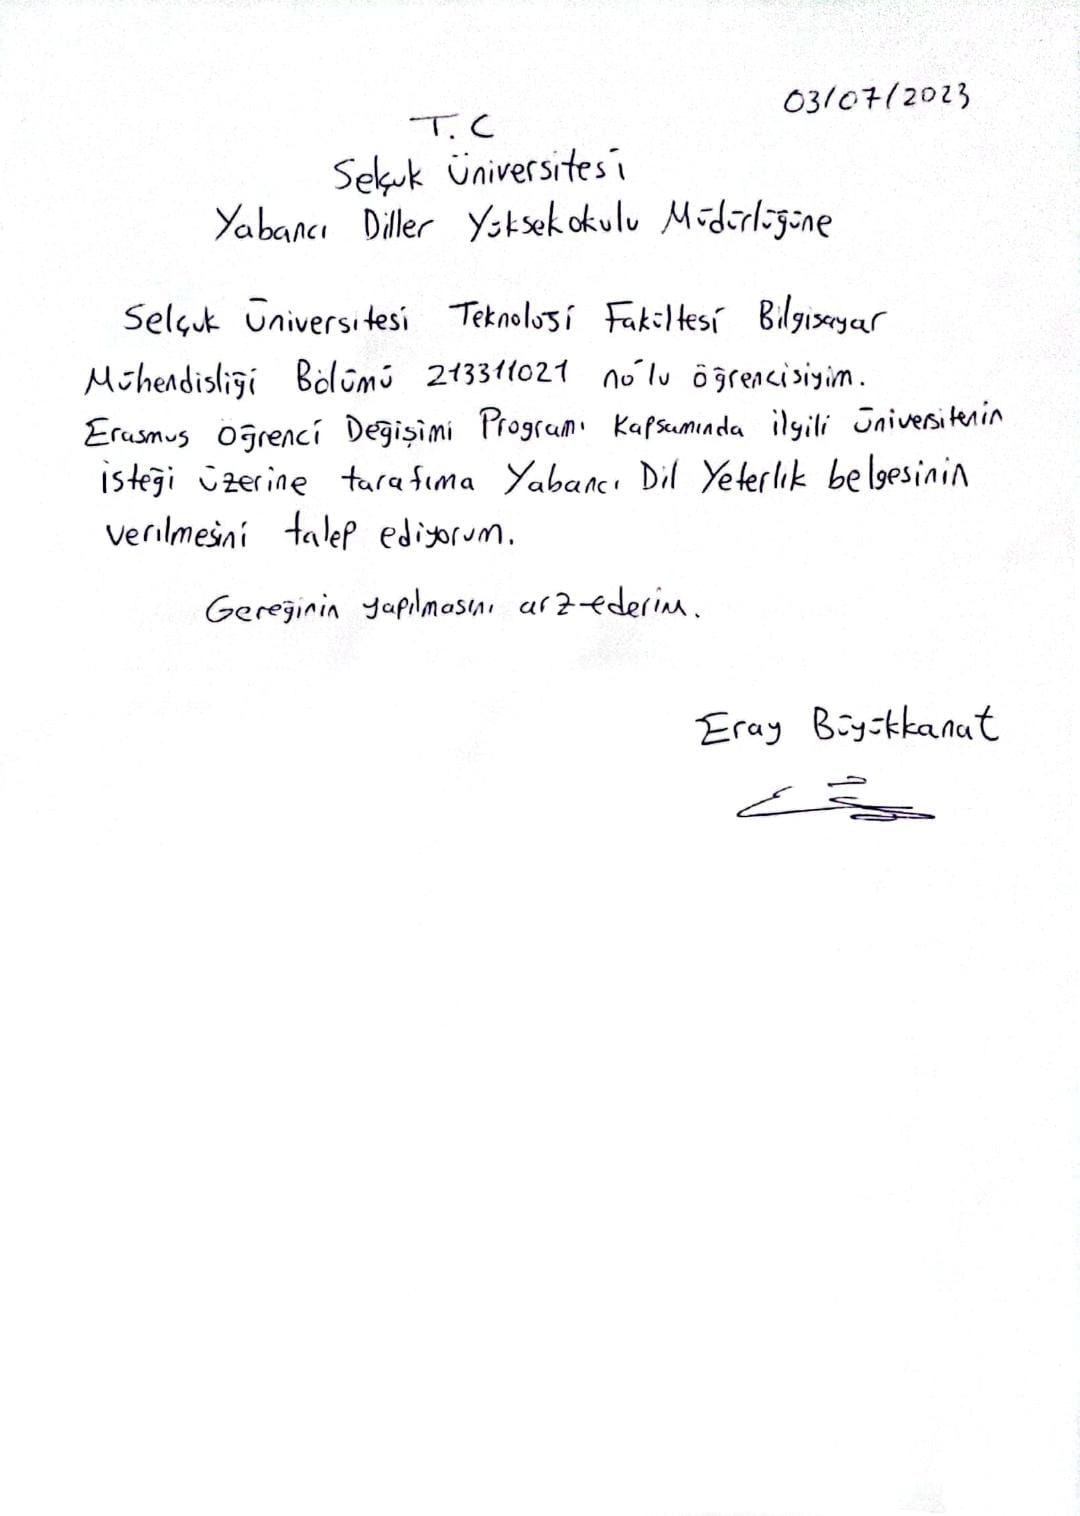 03/07/2023
T.C
Selçuk Üniversitesi
Yabancı Diller Yüksekokulu Müdürlüğüne
Selçuk Üniversitesi Teknoloji Fakültesi Bilgisayar
Mühendisliği Bölümü 213311021 no'lu öğrencisiyim.
Erasmus Öğrenci Değişimi Programı Kapsamında ilgili üniversitenin
isteği üzerine tarafıma Yabancı Dil Yeterlık belgesinin
verilmesini talep ediyorum.
Gereğinin yapılmasını arz ederim.
Eray Büyükkanat